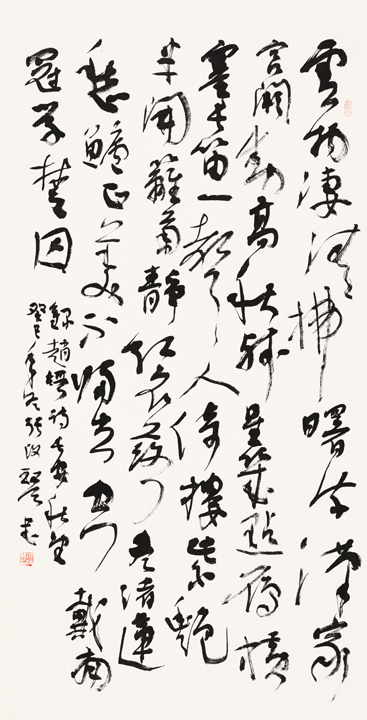 雲物淒清拂曙流漢家
宮闕動高秋殘星幾點雁橫
塞長笛一聲人倚樓紫艷
半開籬菊靜紅衣落盡渚蓮
愁鱸正美不歸去空戴南
冠學楚囚
錄趙嘏詩長安秋望
癸巳年冬張改琴書